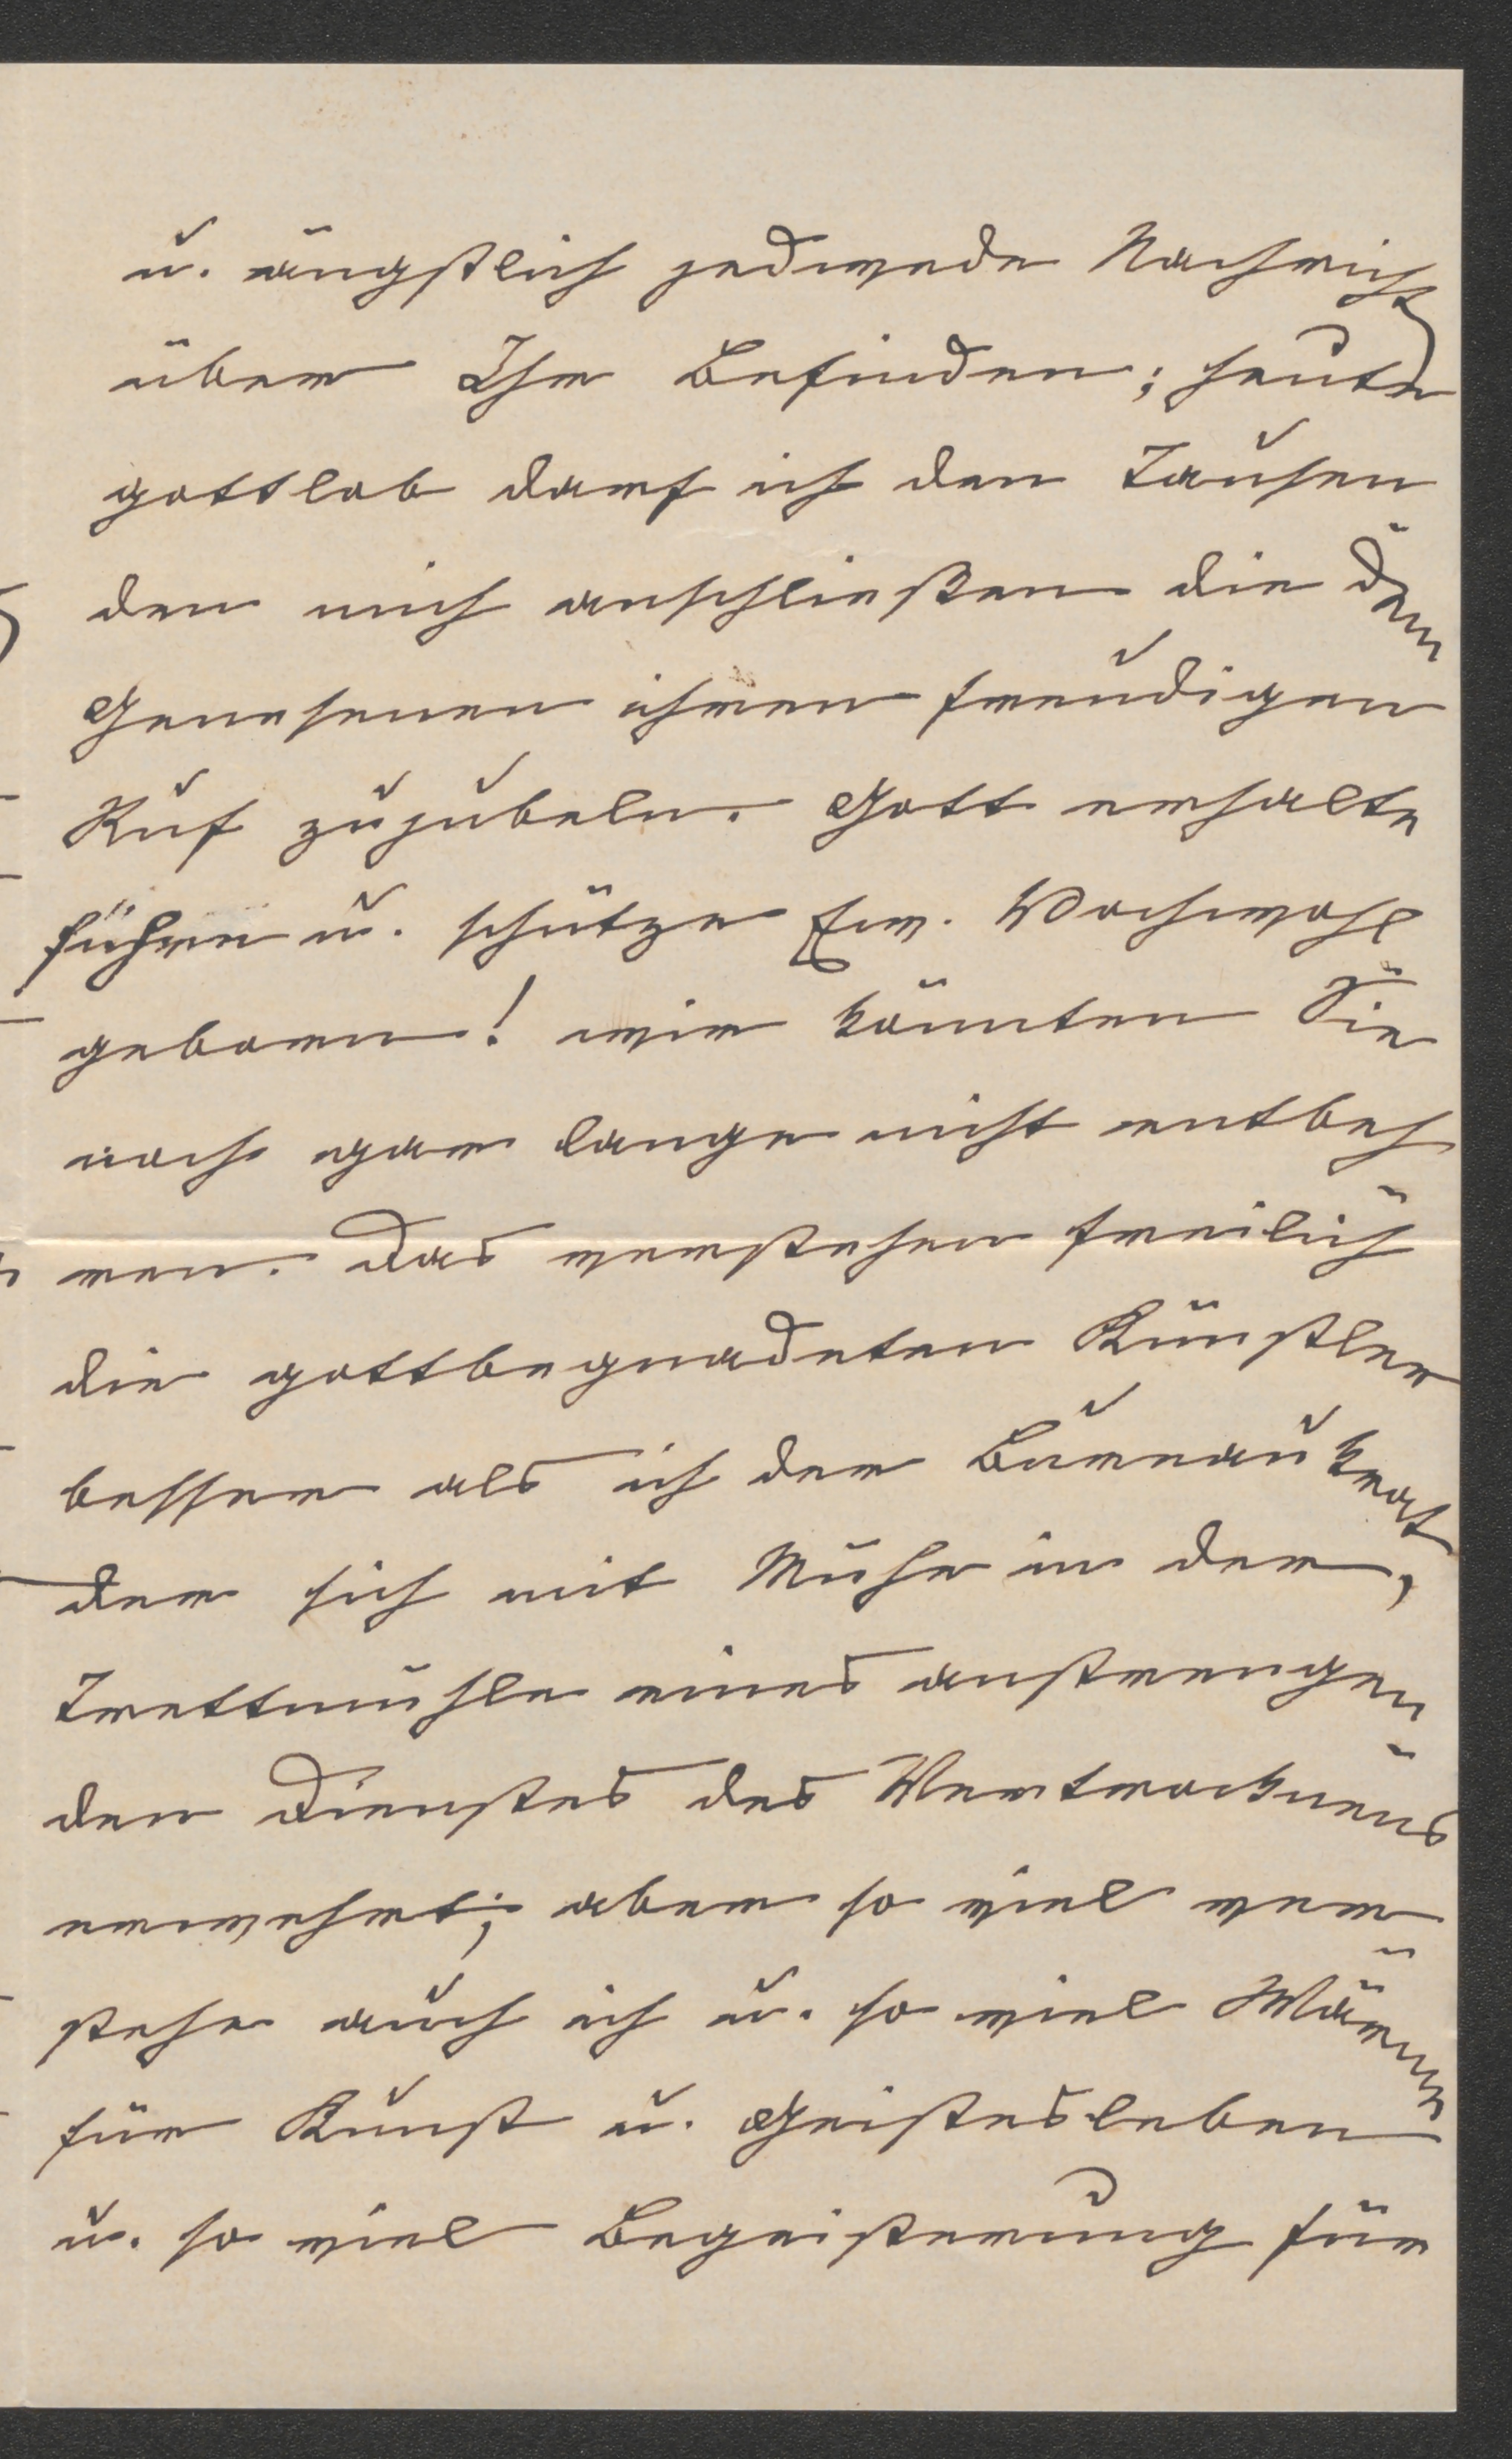 u. ängstlich jedwede Nachricht
über Ihr Befinden; heute
gottlob darf ich den Tausen
den mich anschließen die dem
Genesenen ihren freudigen
Ruf zujubeln. Gott erhalte
führe u. schütze Ew. Hochwohl
geboren! wir könnten Sie
noch gar lange nicht entbeh
ren. Das verstehen freilich
die gottbegnadeten Künstler
besser als ich der Bureaukrat
der sich mit Mühe in der,
Trettmühle eines anstrengen
den Dienstes des Vertrocknens
erwehrt; aber so viel ver
stehe auch ich u. so viel Wärme
für Kunst u. Geistesleben
u. so viel Begeisterung für